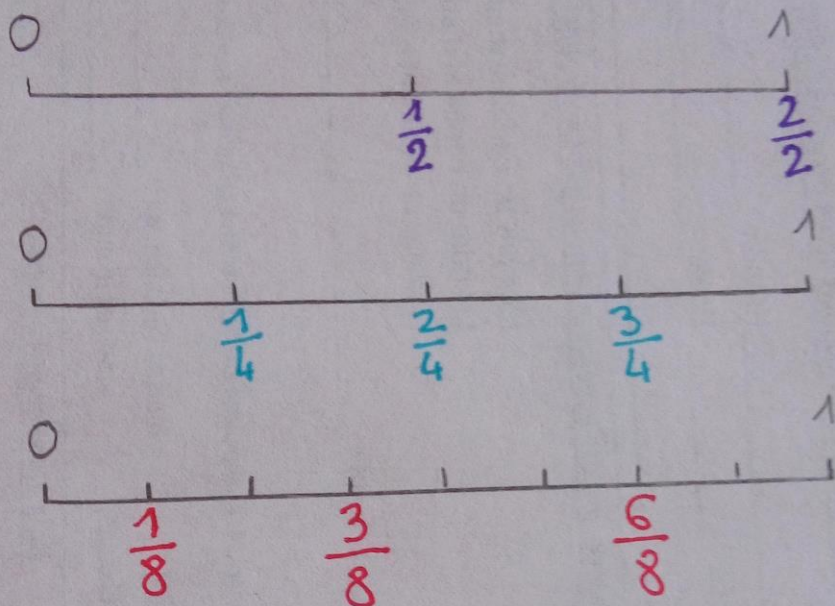 0 1
1/2 2/2
0 1
1/4 2/4 3/4
0 1
1/8 3/8 6/8